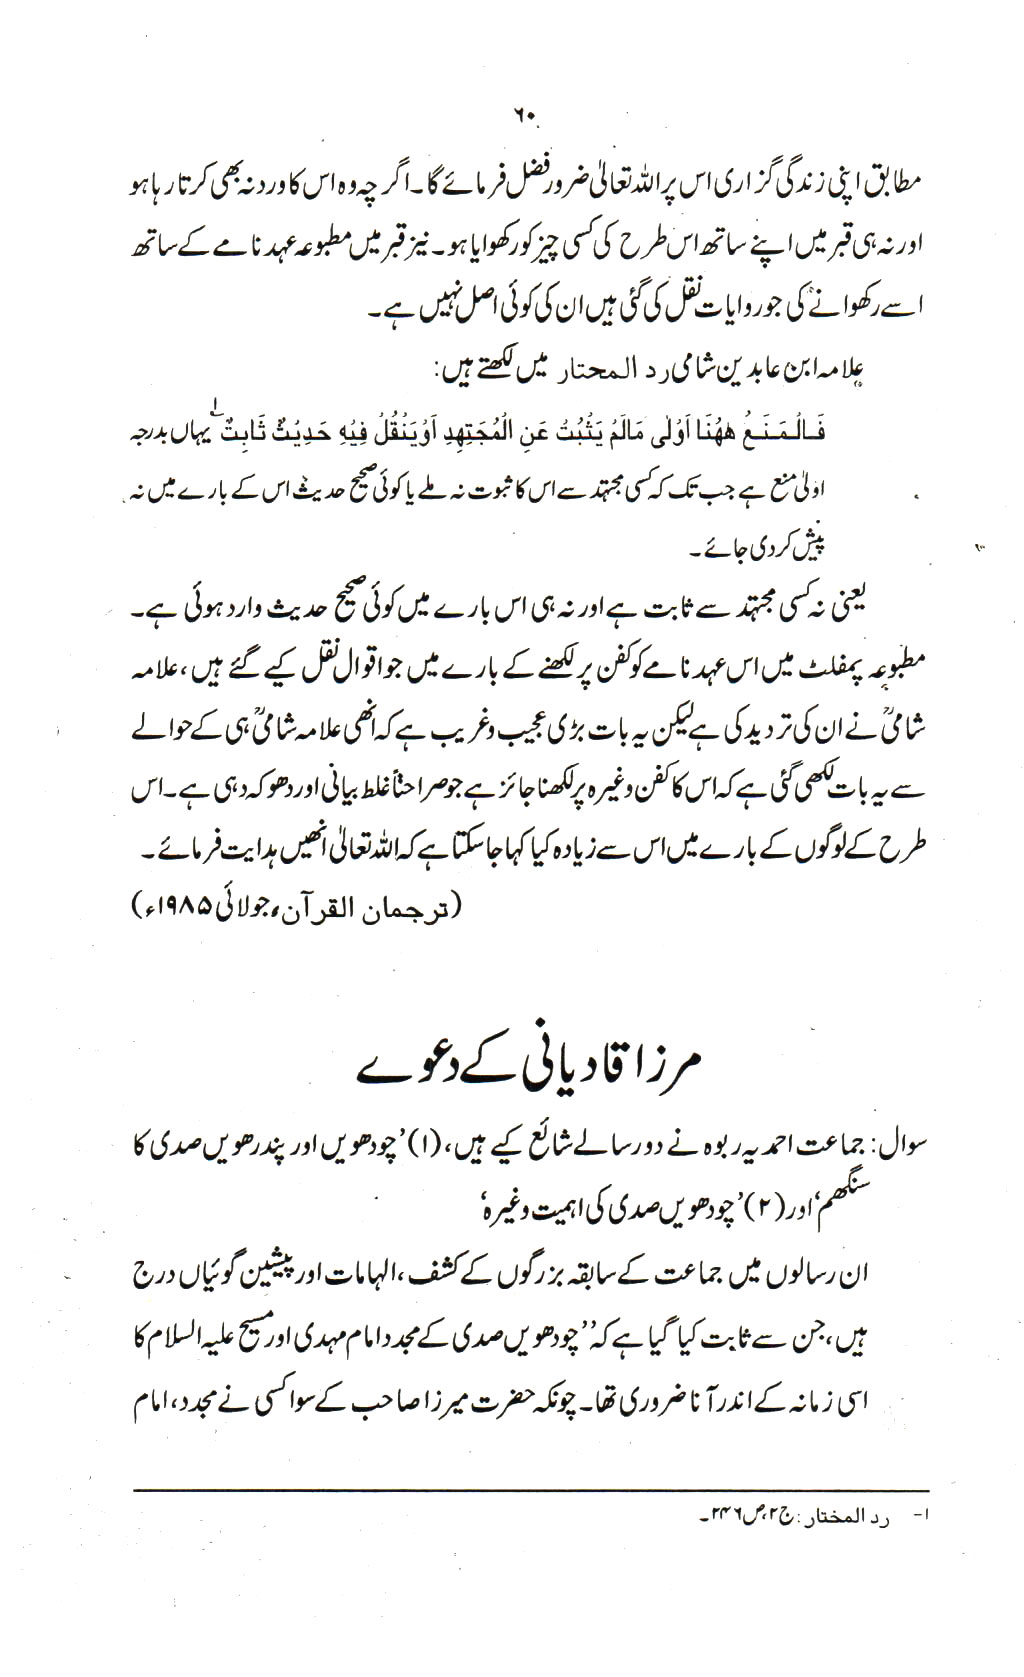 ۶۰
مطابق اپنی زندگی گزاری اس پر اللہ تعالیٰ ضرور فضل فرمائے گا۔ اگر چہ وہ اس کا ورد نہ بھی کرتا رہا ہو
اور نہ ہی قبر میں اپنے ساتھ اس طرح کی کسی چیز کو رکھوایا ہو۔ نیز قبر میں مطبوعہ عہد نامے کے ساتھ
اسے رکھوانے کی جو روایات نقل کی گئی ہیں ان کی کوئی اصل نہیں ہے۔
علامہ ابن عابدین شامی رد المحتار میں لکھتے ہیں:
فَالْمَنَعُ هٰهُنَا اَوْلٰى مَالَمْ يَثْبُتْ عَنِ الْمُجَتِهِدِ اَوْيَنْقُلْ فِيْهِ حَدِيْثٌ ثَابِتٌ۱ یہاں بدرجہ
اولیٰ منع ہے جب تک کہ کسی مجتہد سے اس کا ثبوت نہ ملے یا کوئی صحیح حدیث اس کے بارے میں نہ
پیش کر دی جائے۔
یعنی نہ کسی مجتہد سے ثابت ہے اور نہ ہی اس بارے میں کوئی صحیح حدیث وارد ہوئی ہے۔
مطبوعہ پمفلٹ میں اس عہد نامے کو کفن پر لکھنے کے بارے میں جو اقوال نقل کیے گئے ہیں، علامہ
شامیؒ نے ان کی تردید کی ہے لیکن یہ بات بڑی عجیب و غریب ہے کہ انھی علامہ شامیؒ ہی کے حوالے
سے یہ بات لکھی گئی ہے کہ اس کا کفن وغیرہ پر لکھنا جائز ہے جو صراحتاً غلط بیانی اور دھوکہ دہی ہے۔ اس
طرح کے لوگوں کے بارے میں اس سے زیادہ کیا کہا جا سکتا ہے کہ اللہ تعالیٰ انھیں ہدایت فرمائے۔
(ترجمان القرآن، جولائی ۱۹۸۵ء)
مرزا قادیانی کے دعوے
سوال: جماعت احمدیہ ربوہ نے دو رسالے شائع کیے ہیں، (۱) ’چودھویں اور پندرھویں صدی کا
سنگھم‘ اور (۲) ’چودھویں صدی کی اہمیت وغیرہ‘
ان رسالوں میں جماعت کے سابقہ بزرگوں کے کشف، الہامات اور پیشین گوئیاں درج
ہیں، جن سے ثابت کیا گیا ہے کہ ’’چودھویں صدی کے مجدد امام مہدی اور مسیح علیہ السلام کا
اسی زمانہ کے اندر آنا ضروری تھا۔ چونکہ حضرت میرزا صاحب کے سوا کسی نے مجدد، امام
۱- رد المختار: ج ۲، ص ۲۴۶۔